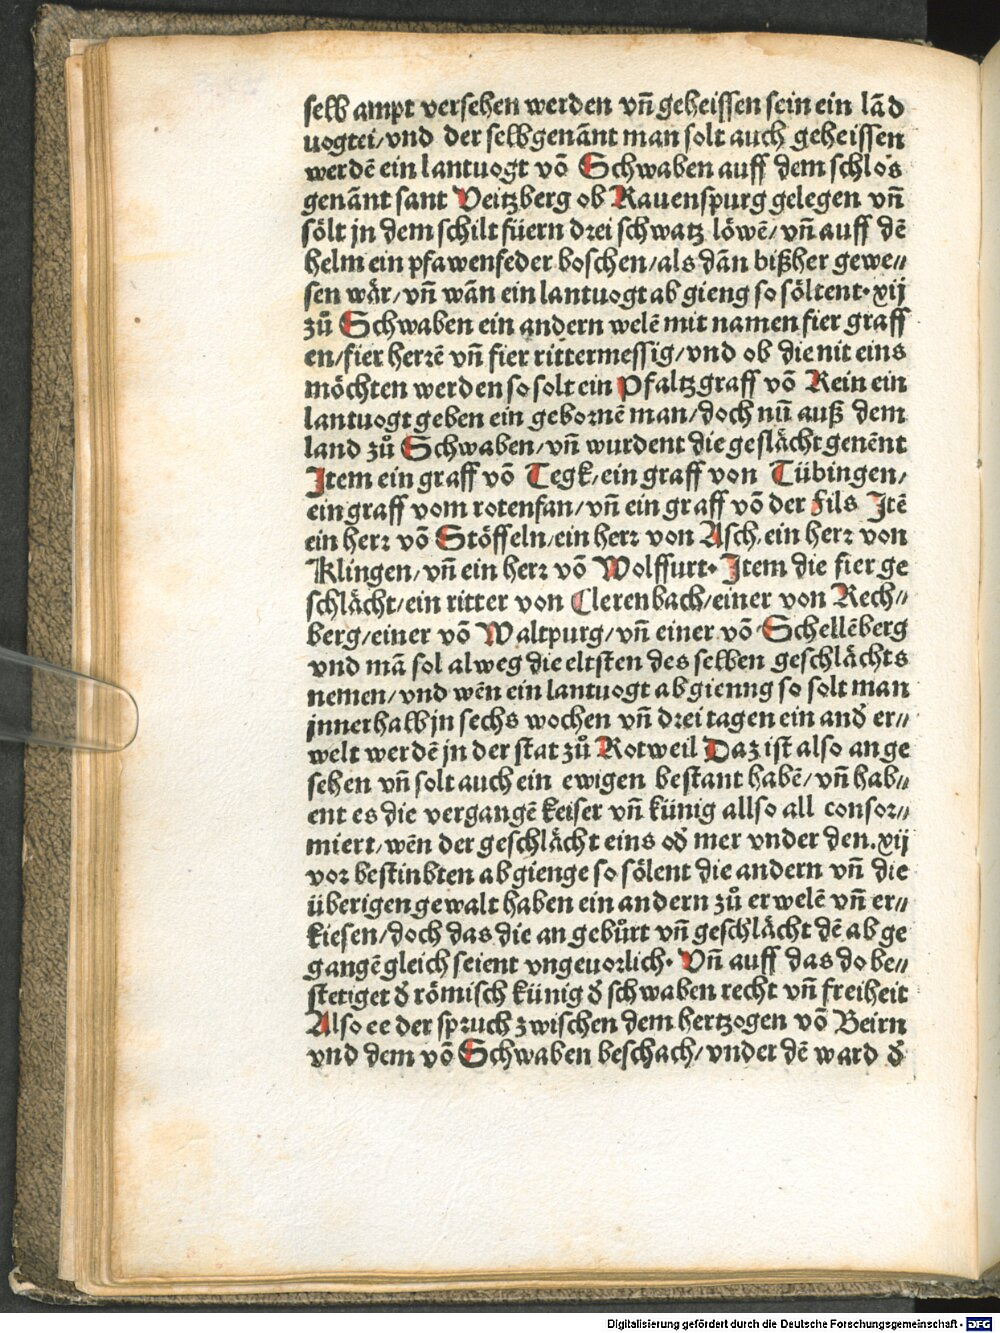 selb ampt versehen werden vñ geheissen sein ein lãd
uogtei/vnd der selbgenãnt man solt auch geheissen
werdẽ ein lantuogt võ Schwaben auff dem schlos
genãnt sant Veitzberg ob Rauenspurg gelegen vñ
sölt jn dem schilt füern drei schwatz löwẽ/vñ auff dẽ
helm ein pfawenfeder boschen/als dãn bißher gewe//
sen wär/vñ wãn ein lantuogt ab gieng so söltent·xij
zů Schwaben ein andern welẽ mit namen fier graff
en/fier herrẽ vñ fier rittermessig/vnd ob die nit eins
möchten werden so solt ein Pfaltzgraff võ Rein ein
lantuogt geben ein gebornẽ man/doch nũ auß dem
land zů Schwaben/vñ wurdent die geslächt genẽnt
Item ein graff võ Tegk/ein graff von Tübingen/
ein graff vom rotenfan/vñ ein graff võ der Fils Itẽ
ein herr võ Stöffeln/ein herr von Asch/ein herr von
Klingen/vñ ein herr võ Wolffurt· Item die fier ge
schlächt/ein ritter von Clerenbach/einer von Rech//
berg/einer võ Waltpurg/vñ einer võ Schellẽberg
vnd mã sol alweg die eltsten des selben geschlächts
nemen/vnd wẽn ein lantuogt ab gienng so solt man
jnnerhalb jn sechs wochen vñ drei tagen ein and̃ er//
welt werdẽ jn der stat zů Rotweil Daz ist also an ge
sehen vñ solt auch ein ewigen bestant habẽ/vñ hab//
ent es die vergangẽ keiser vñ künig allso all consor//
miert/wẽn der geschlächt eins od̃ mer vnder den.xij
vor bestinbten ab gienge so sölent die andern vñ die
überigen gewalt haben ein andern zů erwelẽ vñ er//
kiesen/doch das die an gebůrt vñ geschlächt dẽ ab ge
gangẽ gleich seient vngeuorlich· Vñ auff das do be//
stetiget d̃ römisch künig d̃ schwaben recht vñ freiheit
Also ee der spruch zwischen dem hertzogen võ Beirn
vnd dem võ Schwaben beschach/vnder dẽ ward d̃
Digitalisierung gefördert durch die Deutsche Forschungsgemeinschaft - DFG